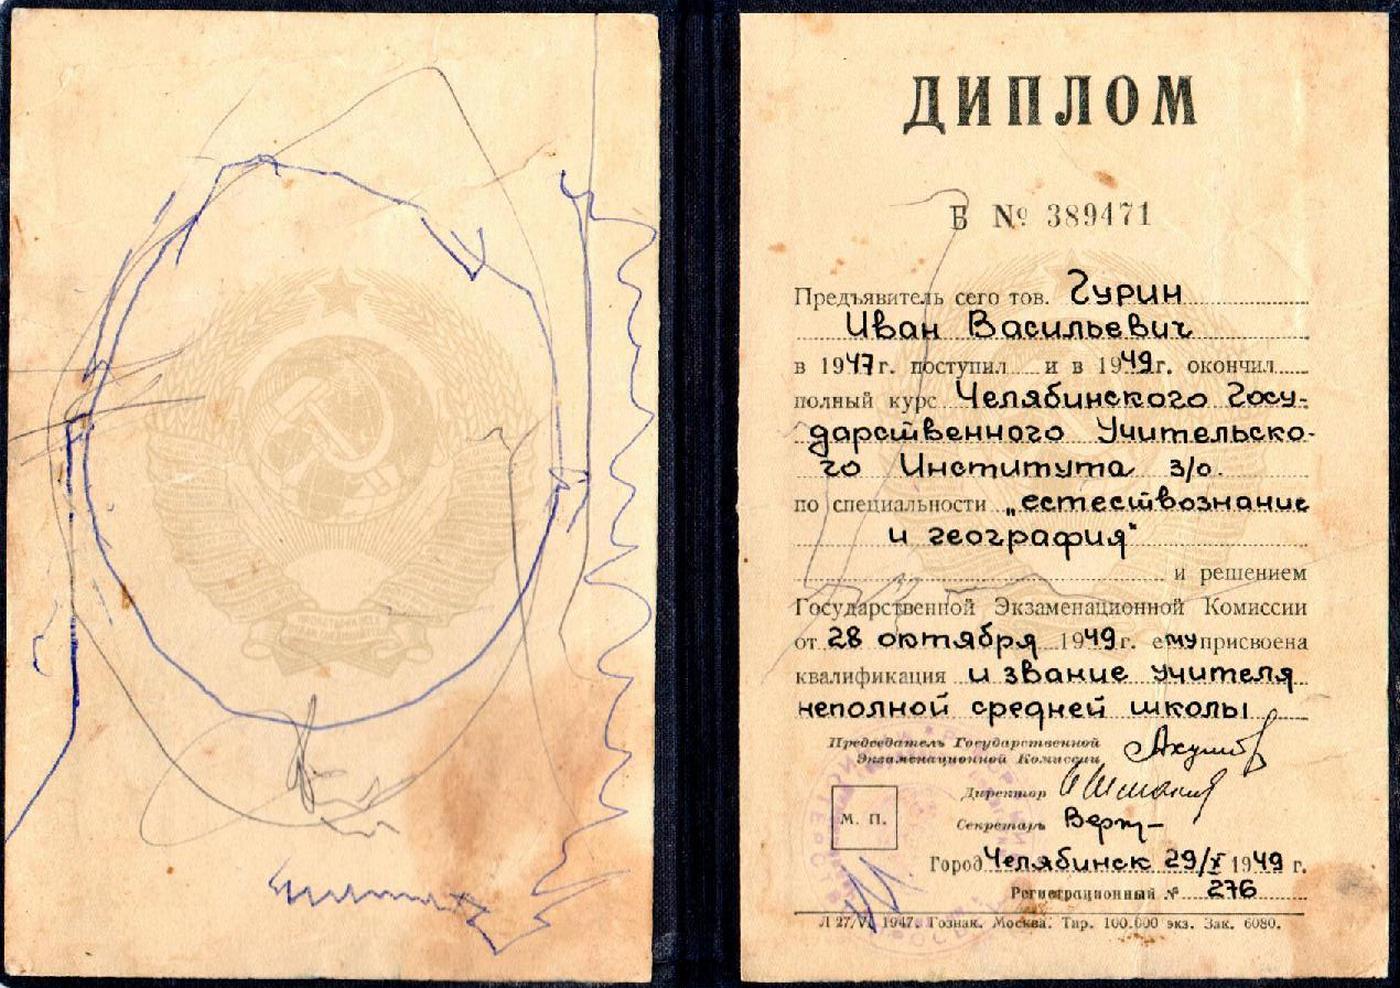 ДИПЛОМ
Б № 389471
Предъявитель сего тов. Гурин
Иван Васильевич
в 1947 г. поступил и в 1949 г. окончил
полный курс Челябинского Госу-
дарственного Учительско-
го Института з/о.
по специальности „естествознание
и география“
и решением
Государственной Экзаменационной Комиссии
от 28 октября 1949 г. ему присвоена
квалификация и звание учителя
неполной средней школы
Председатель Государственной
Экзаменационной Комиссии
Директор
Секретарь
М. П.
Город Челябинск 29/X 1949 г.
Регистрационный № 276
Л 27/VI 1947. Гознак. Москва. Тир. 100.000 экз. Зак. 6080.